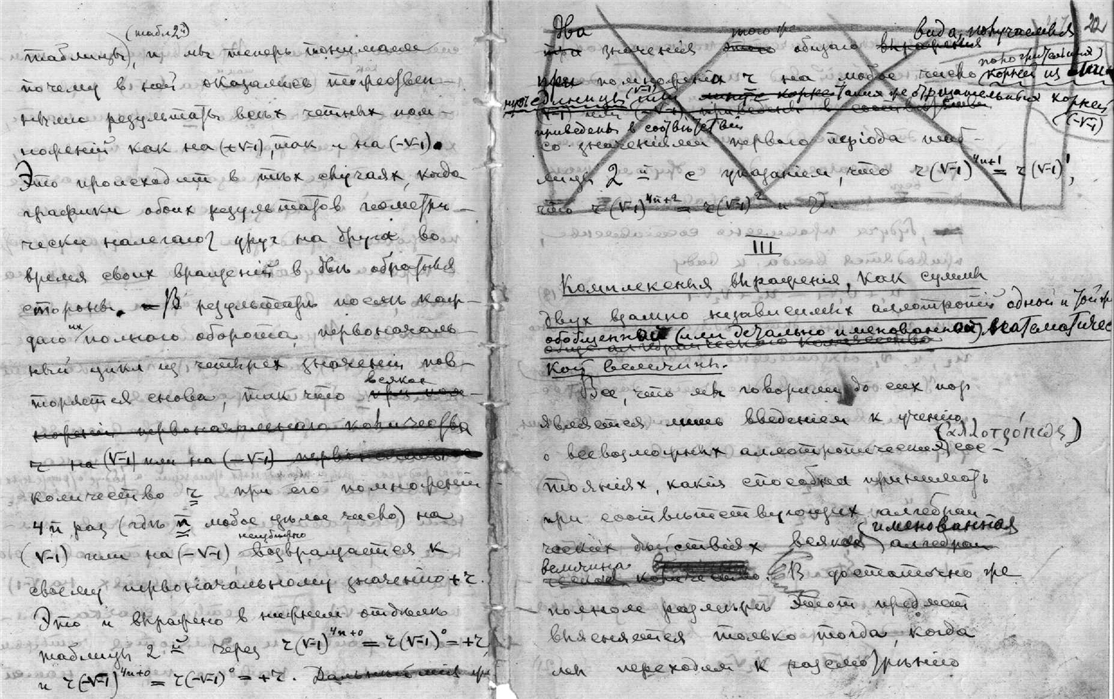 (табл. 2й)
таблицы, и мы теперь понимаем
почему в ней оказались
результаты всѣхъ четныхъ пом-
ноженій какъ на (+√-1), такъ и на (-√-1).
Это происходитъ въ тѣхъ случаяхъ, когда
графики обоихъ результатовъ геометри-
чески налегаютъ другъ на друга во
время своихъ вращеній въ двѣ обратныя
стороны. – Въ результатѣ послѣ каж-
даго ихъ полнаго оборота первоначаль-
ный циклъ изъ четырехъ значеній пов-
торяется снова, такъ что всякое
ноженіи первоначальнаго количества
r на (√-1) или на (-√-1)
количество r при его помноженіи
4n разъ (гдѣ n любое цѣлое число) на
(√-1) или на (-√-1) возвращается к
своему первоначальному значенію +r.
Это и выражено въ нижнемъ отдѣлѣ
таблицы 2.й через r(√-1)^4n+0 = r(√-1)^0 = +r
и r(-√-1)^4n+0 = r(-√-1)^0 = +r.
22
Два того же вида, получаемыя
значенія общаго выраженія
при помноженіи r на любое число корней изъ
приведены в соотвѣтствіи
со значеніями перваго періода таб-
лицы 2й с указаніемъ, что r(√-1)^4n+1 = r(√-1)^1,
что r(√-1)^4n+2 = r(√-1)^2 и т. д.
III
Комплексныя выраженія, какъ суммы
двухъ взаимно независимыхъ аллотропій одной и той же
обобщенной (или детально именованной) математичес-
кой величины.
Все, что мы говорили до сихъ поръ
является лишь введеніемъ къ ученію
(αλλοτρόπως)
о всевозможныхъ аллотропическихъ сос-
тояніяхъ, какія способна принимать
при соотвѣтствующихъ алгебраи-
ческихъ дѣйствіяхъ всякая именованная
величина. Въ достаточно же
полномъ размѣрѣ этотъ предметъ
выясняется только тогда когда
мы переходимъ къ разсмотрѣнію